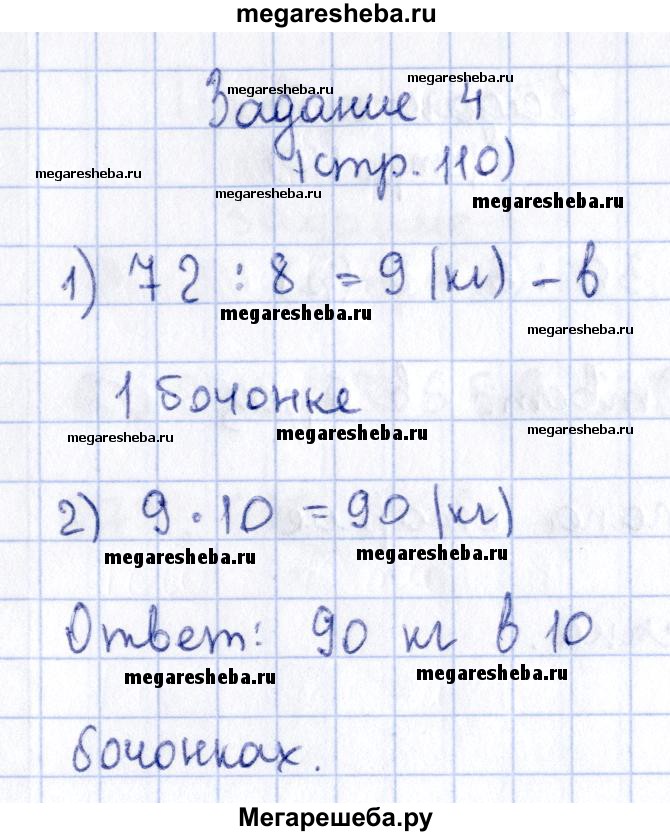 megaresheba.ru
Задание 4
megaresheba.ru megaresheba.ru
(стр. 110)
megaresheba.ru megaresheba.ru megaresheba.ru
1) 72 : 8 = 9 (кг) – в
megaresheba.ru megaresheba.ru
1 бочонке
megaresheba.ru megaresheba.ru megaresheba.ru
2) 9 · 10 = 90 (кг)
megaresheba.ru megaresheba.ru
Ответ: 90 кг в 10
megaresheba.ru megaresheba.ru
бочонках.
Мегарешеба.ру